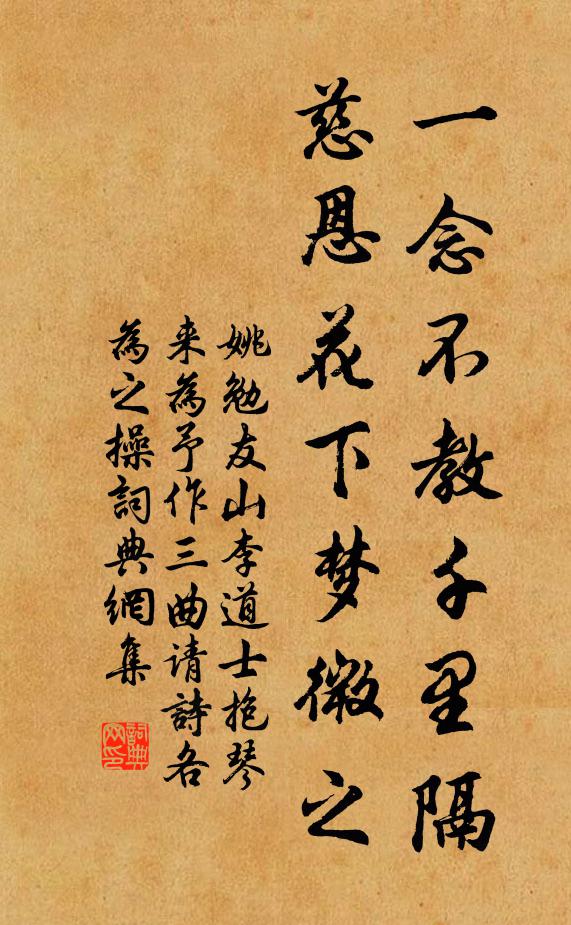 一念不教千里隔
慈恩花下梦微之
姚勉友山李道士抱琴
来為予作三曲请詩各
為之操詞典網集
詞典
网印